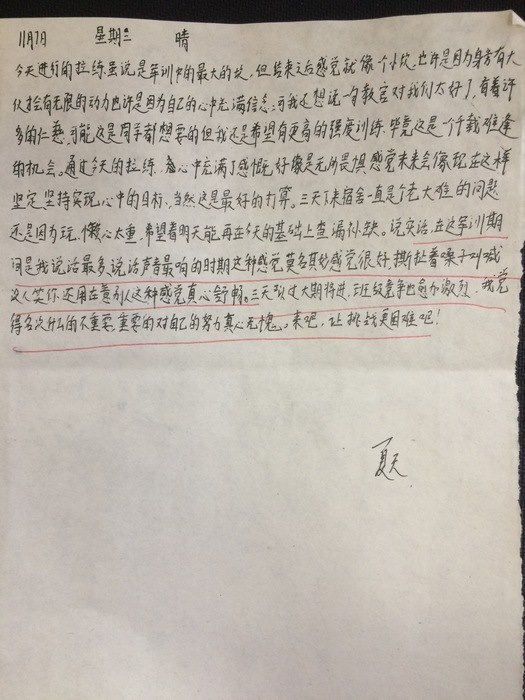 11月7日 星期二 晴
今天进行的拉练,虽说是军训中的最大的坎,但结束之后感觉就像个小坎,也许是因为身旁有大
伙才会有无限的动力也许是因为自己的心中充满信念,可我还想说一句教官对我们太好了,有着许
多的仁慈,可能这是同学都想要的但我还是希望有更高的强度训练,毕竟这是一个千载难逢
的机会。通过今天的拉练,心中充满了感慨,好像是无所畏惧感觉未来会像现在这样
坚定,坚持实现心中的目标,当然这是最好的打算。三天下来宿舍一直是个老大难的问题
还是因为玩心太重,希望着明天能再在今天的基础上查漏补缺。说实话,在这军训期
间是我说话最多,说话声音最响的时期这种感觉莫名其妙感觉很好,撕扯着嗓子叫喊
没人笑你,还用在意别人这种感觉真心舒畅。三天已过大期将进,班级竞争也愈加激烈,我觉
得名次什么的不重要,重要的对自己的努力真心无愧。来吧,让挑战更困难吧!
夏天